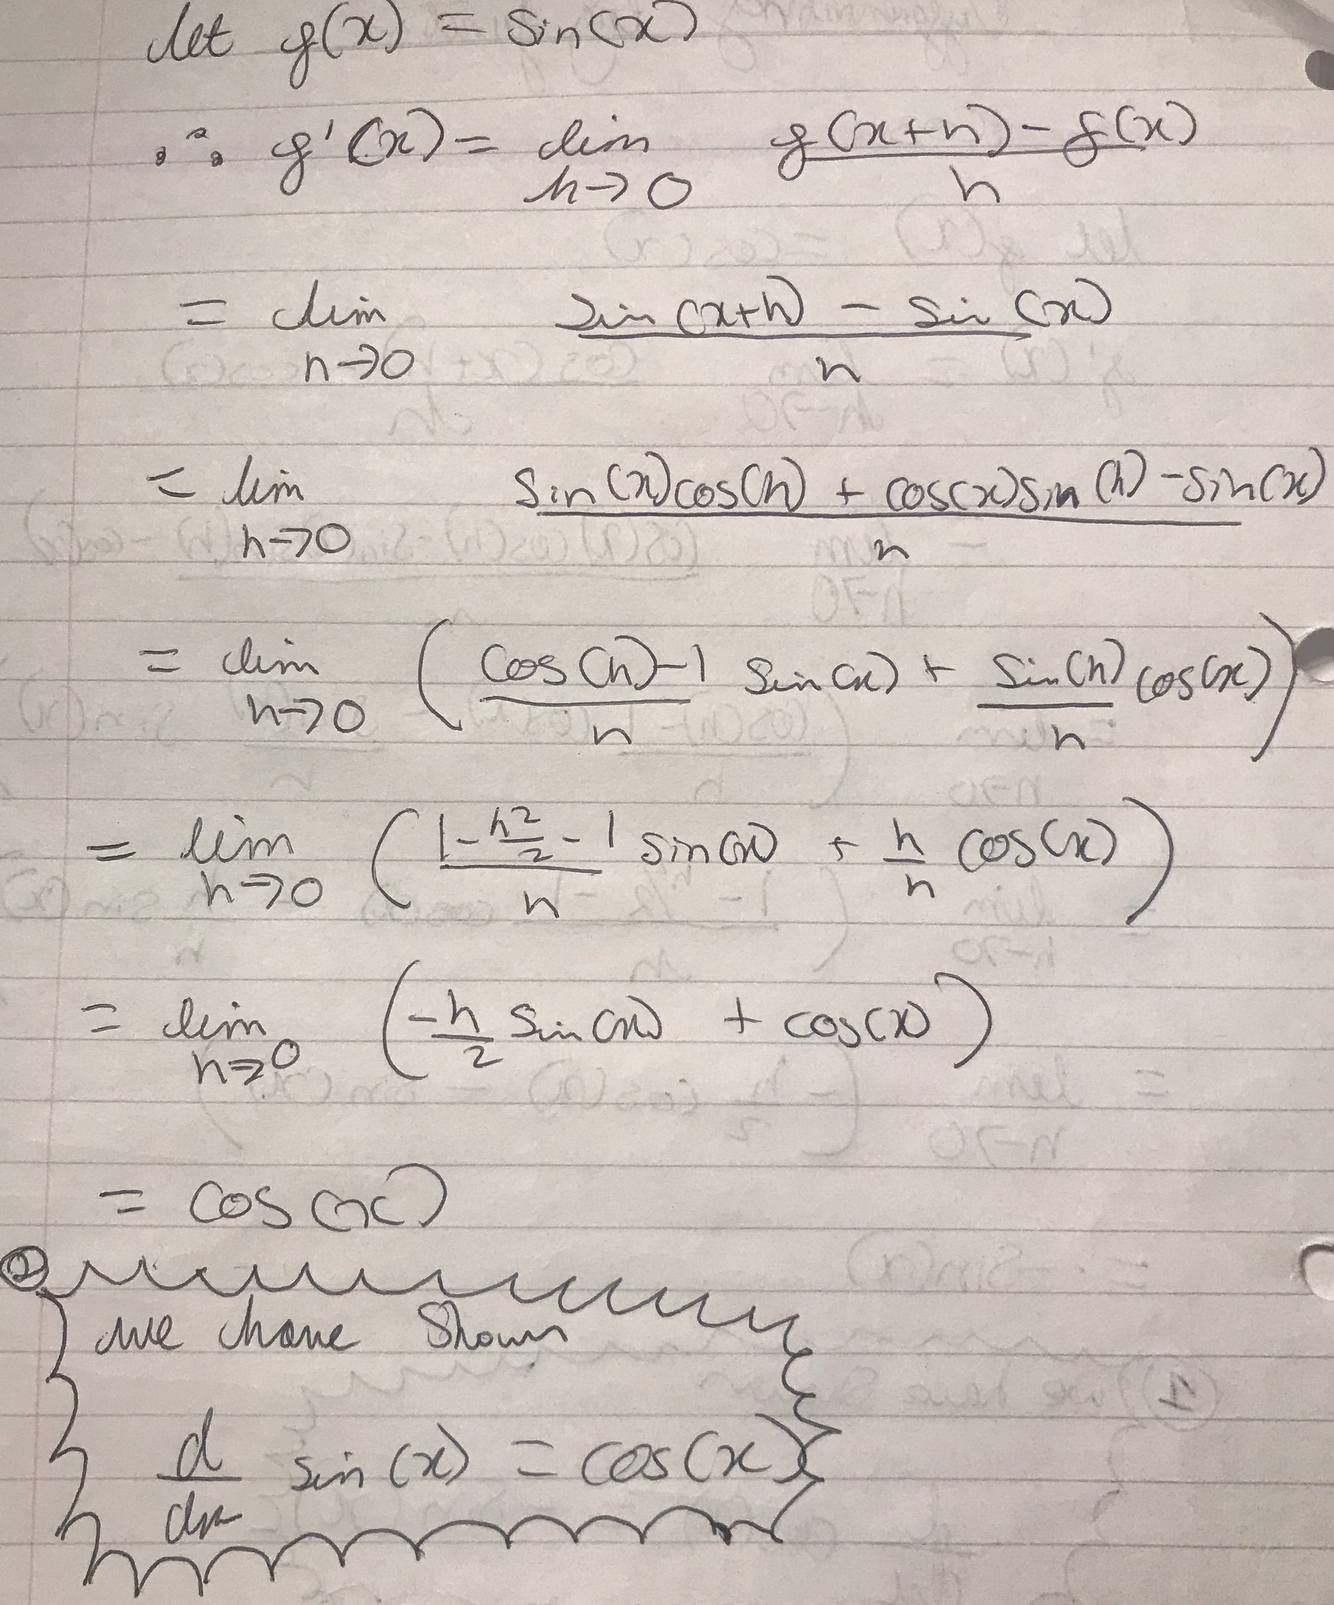 let g(x) = sin(x)
∴ g'(x) = lim h→0 (g(x+h) - g(x))/h
= lim h→0 (sin(x+h) - sin(x))/h
= lim h→0 (sin(x)cos(h) + cos(x)sin(h) - sin(x))/h
= lim h→0 ((cos(h)-1)/h sin(x) + sin(h)/h cos(x))
= lim h→0 ((1-h²/2-1)/h sin(x) + h/h cos(x))
= lim h→0 (-h/2 sin(x) + cos(x))
= cos(x)
②
we have shown
d/dx sin(x) = cos(x)